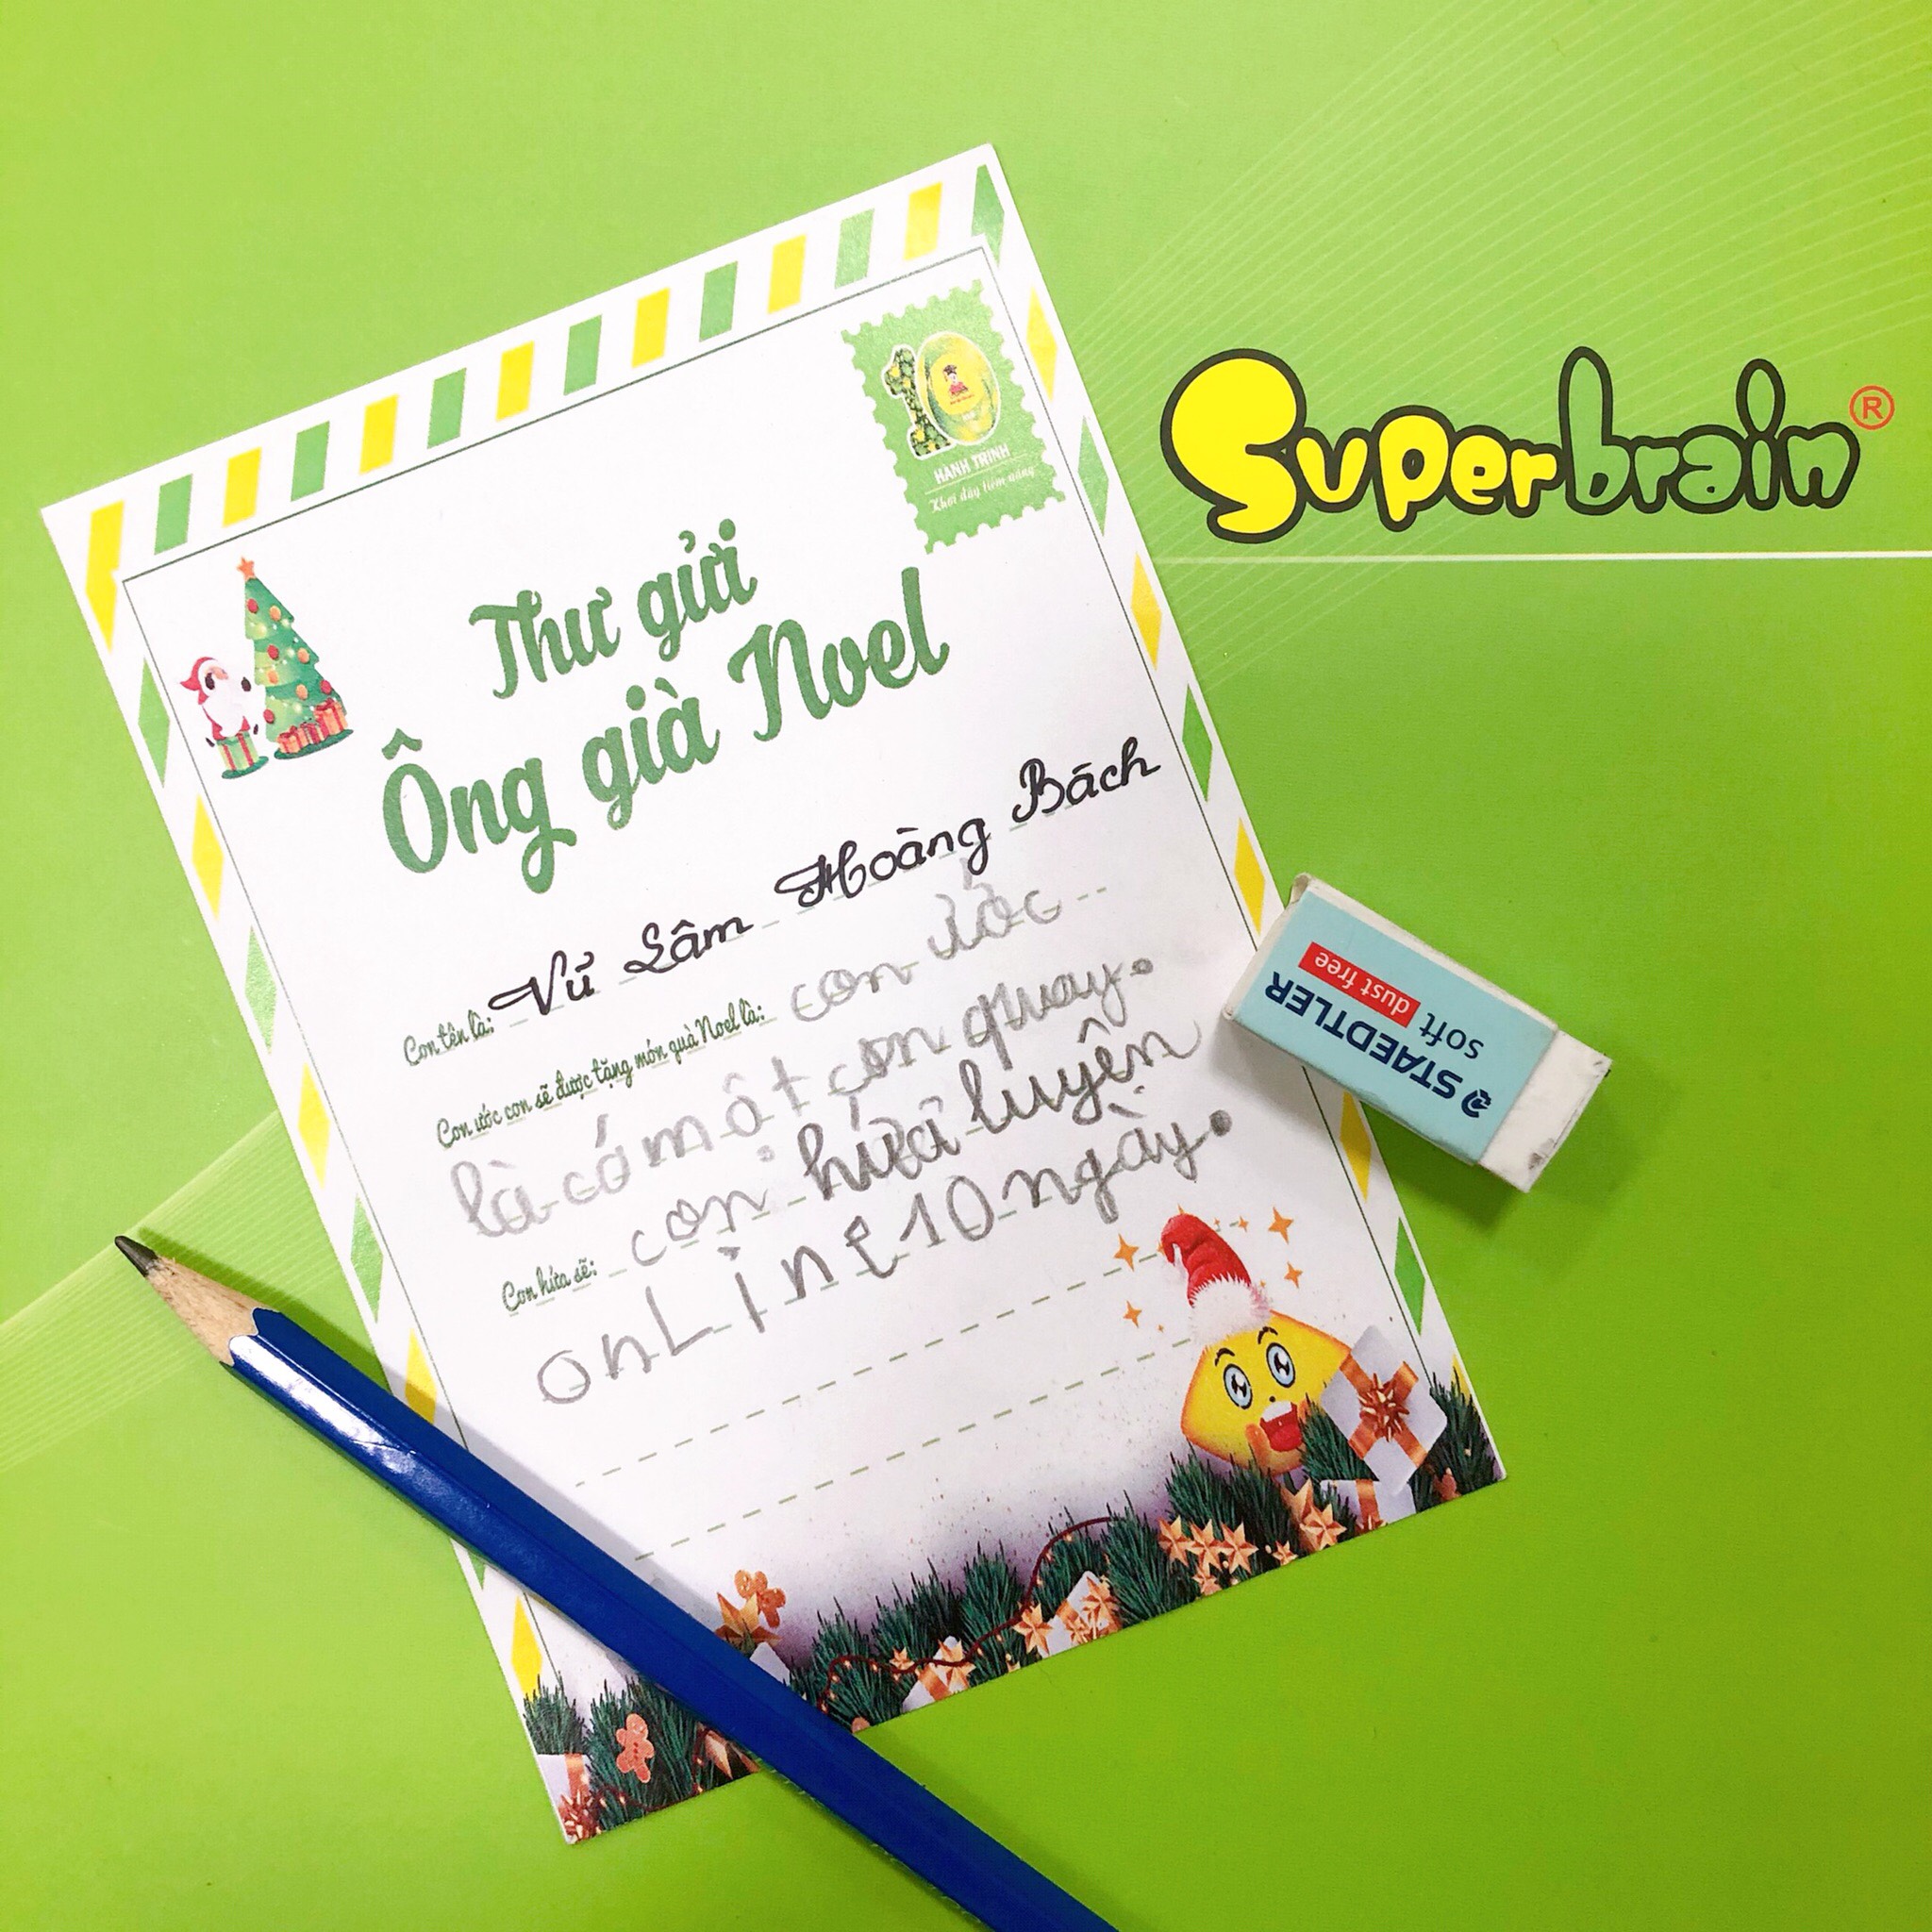 10
HÀNH TRÌNH
Khơi dậy tiềm năng
Superbrain®
Thư gửi
Ông già Noel
Con tên là: Vũ Lâm Hoàng Bách
Con ước con sẽ được tặng món quà Noel là: con ước
là có một con quay.
Con hứa sẽ: con hứa luyện
onLine 10 ngày.
STAEDTLER
soft dust free